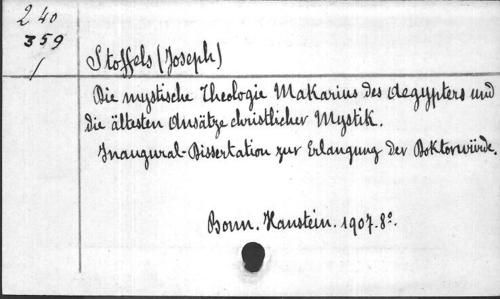 240
359
/
Stoffels (Joseph)
Die mystische Theologie Makarius des Aegypters und
die ältesten Ansätze christlicher Mystik.
Inaugural-Dissertation zur Erlangung der Doktorwürde.
Bonn. Hanstein. 1907. 8°.